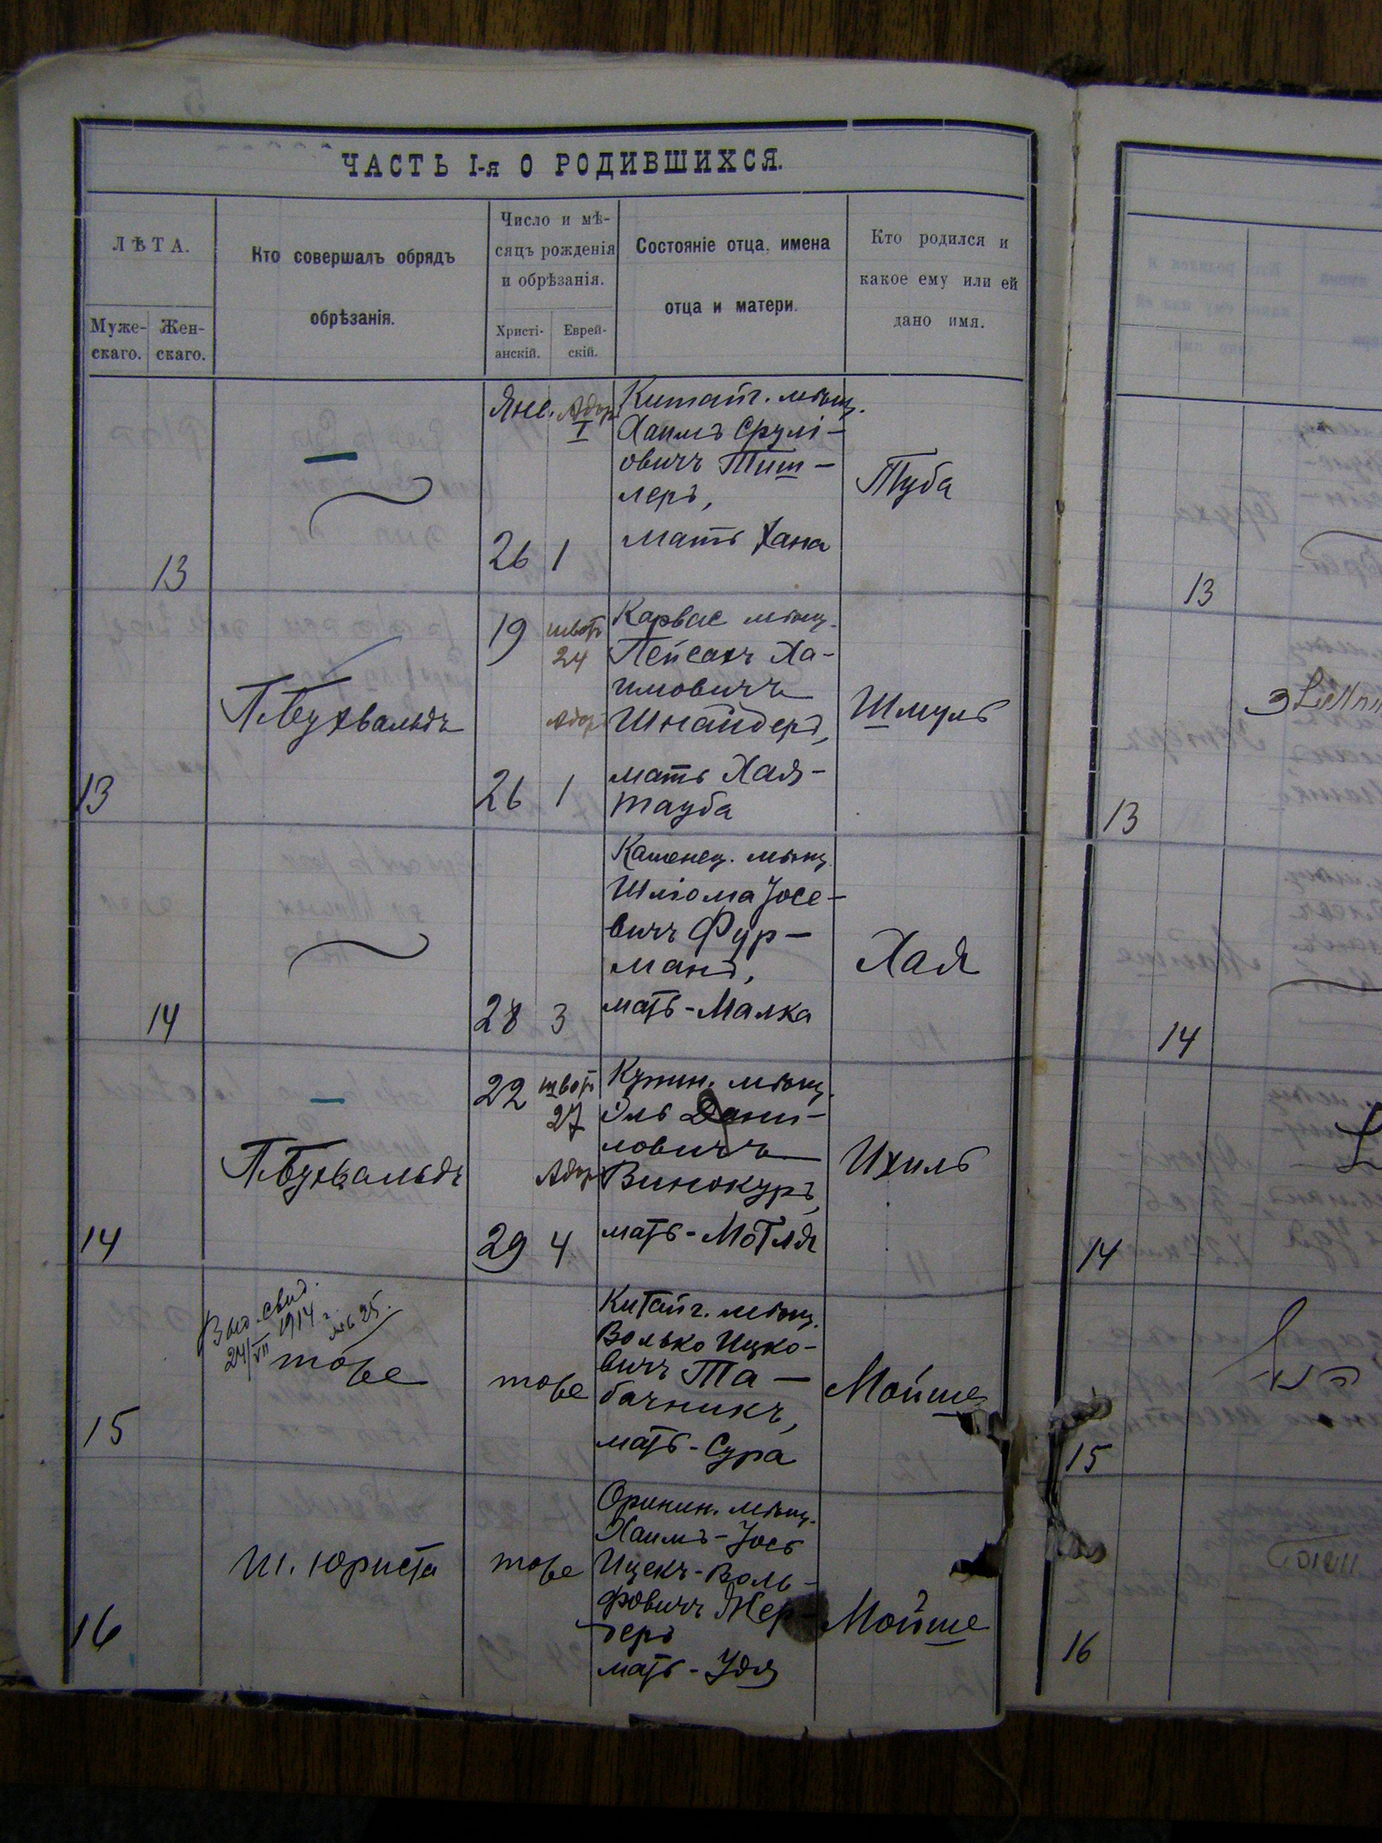 ЧАСТЬ I-я О РОДИВШИХСЯ.
ЛѢТА.
Муже-
скаго.
Жен-
скаго.
Кто совершалъ обрядъ
обрѣзанія.
Число и мѣ-
сяцъ рожденія
и обрѣзанія.
Христі-
анскій.
Еврей-
скій.
Состояніе отца, имена
отца и матери.
Кто родился и
какое ему или ей
дано имя.
13
Янв. Адор
I
26 1
Китайг. мѣщ.
Хаимъ Срулі-
овичъ Тиш-
леръ,
мать Хана
Туба
13
П. Бухвальдъ
19 шват
24
Адор
26 1
Карвас мѣщ.
Пейсахъ Ха-
имовичъ
Шнайдеръ,
мать Хая-
Тауба
Шмуль
14
28 3
Каменец. мѣщ.
Шліома Іосе-
вичъ Фур-
манъ,
мать-Малка
Хая
14
П. Бухвальдъ
22 шват
27
Адор
29 4
Купин. мѣщ.
Эль Дани-
ловичъ
Винокуръ,
мать-Мотля
Ихиль
15
Выд. свид.
24/VII 1914 г.
№ 25.
тоже
тоже
Китайг. мѣщ.
Волько Ицко-
вичъ Та-
бачникъ,
мать-Сура
Мойше
16
Ш. Юриста
тоже
Оринин. мѣщ.
Хаимъ-Іось
Ицекъ-Воль-
фовичъ Мер-
деръ
мать-Удя
Мойше
13
13
14
14
15
16